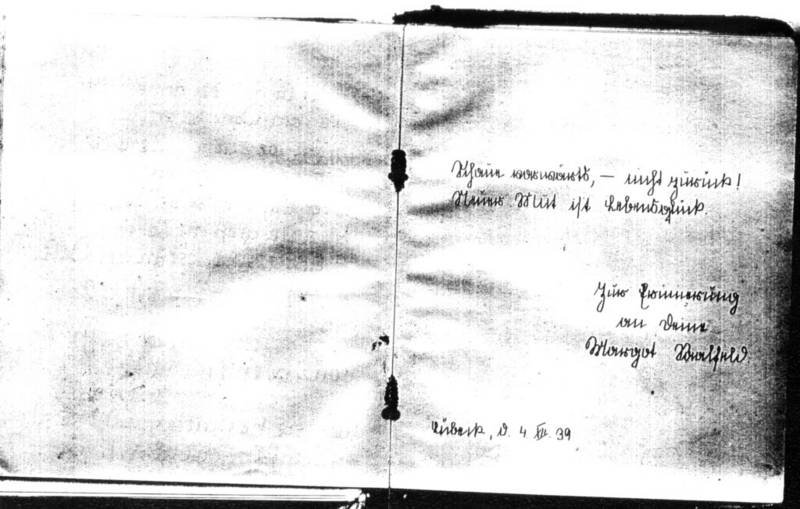 Schaue vorwärts, – nicht zurück!
Neuer Mut ist Lebensglück.
Zur Erinnerung
an Deine
Margot
Lübeck, d. 4 XII. 39